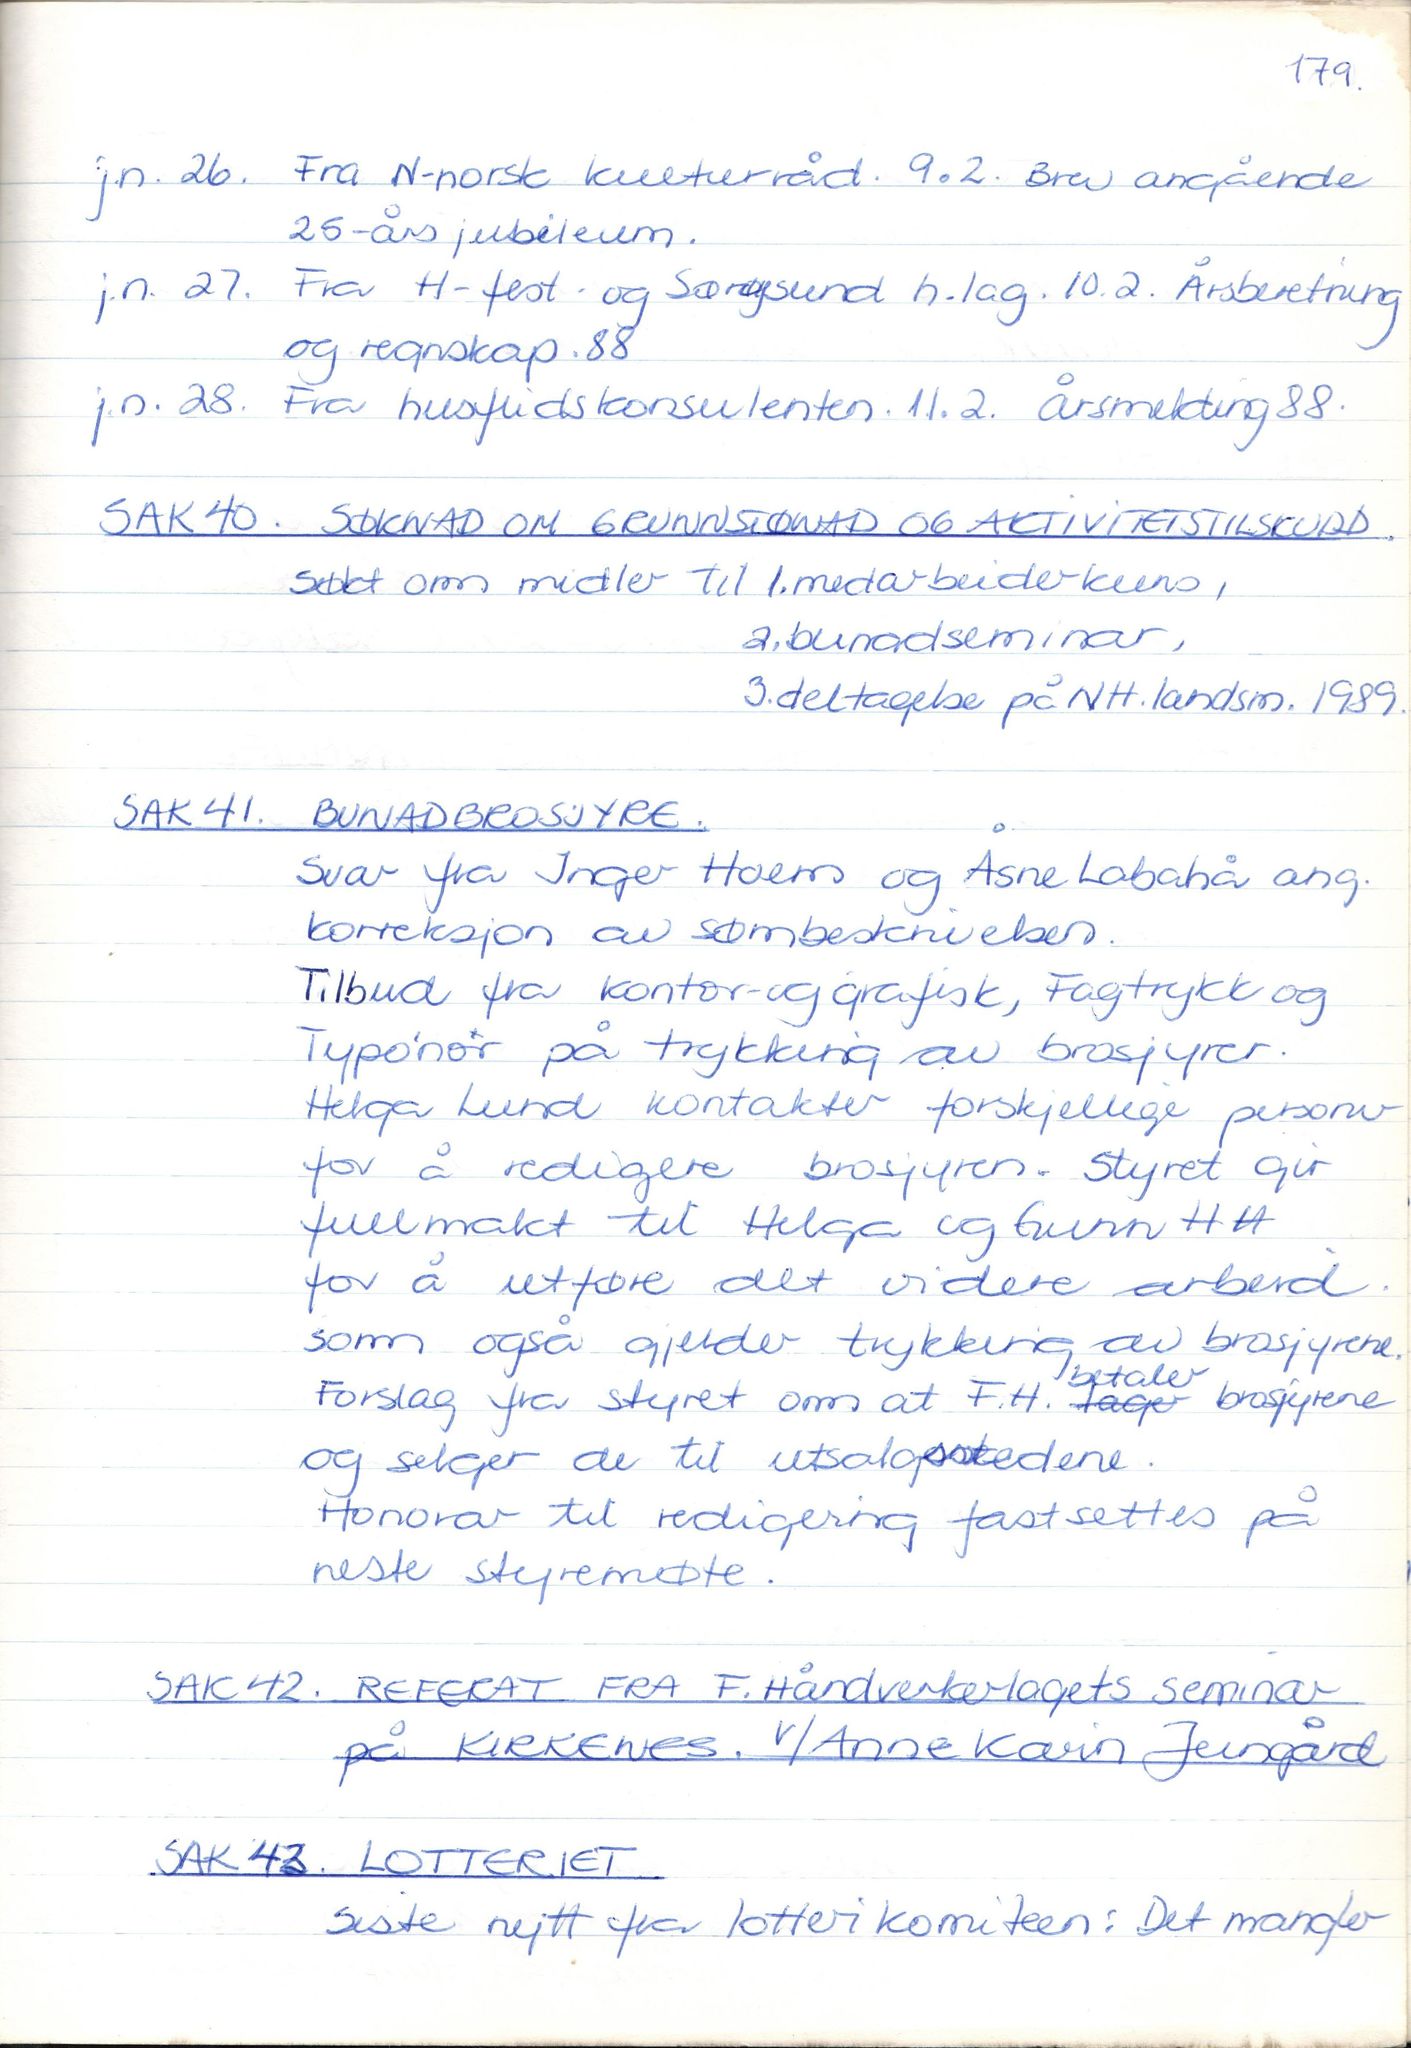 179.
j.n. 26. Fra N-norsk kulturråd. 9.2. Brev angående
25-års jubileum.
j.n. 27. Fra H-fest. og Sørøysund h.lag. 10.2. Årsberetning
og regnskap.88
j.n. 28. Fra husflidskonsulenten. 11.2. Årsmelding 88.
SAK 40. SØKNAD OM GRUNNSTØNAD OG AKTIVITETSTILSKUDD.
Søkt om midler til 1. medarbeiderkurs,
2. bunadseminar,
3. deltagelse på NH. landsm. 1989.
SAK 41. BUNADBROSJYRE.
Svar fra Inger Hoem og Åsne Labahå ang.
korreksjon av sømbeskrivelsen.
Tilbud fra kontor-og grafisk, Fagtrykk og
Typónor på trykking av brosjyrer.
Helga Lund kontakter forskjellige personer
for å redigere brosjyren. Styret gir
fullmakt til Helga og Gunn HH
for å utføre det videre arbeid.
som også gjelder trykking av brosjyrene.
Forslag fra styret om at F.H. lager betaler brosjyrene
og selger de til utsalgsstedene.
Honorar til redigering fastsettes på
neste styremøte.
SAK 42. REFERAT FRA F. Håndverkerlagets seminar
på KIRKENES. v/ Anne Karin
SAK 43. LOTTERIET
Siste nytt fra lotterikomiteen: Det mangler